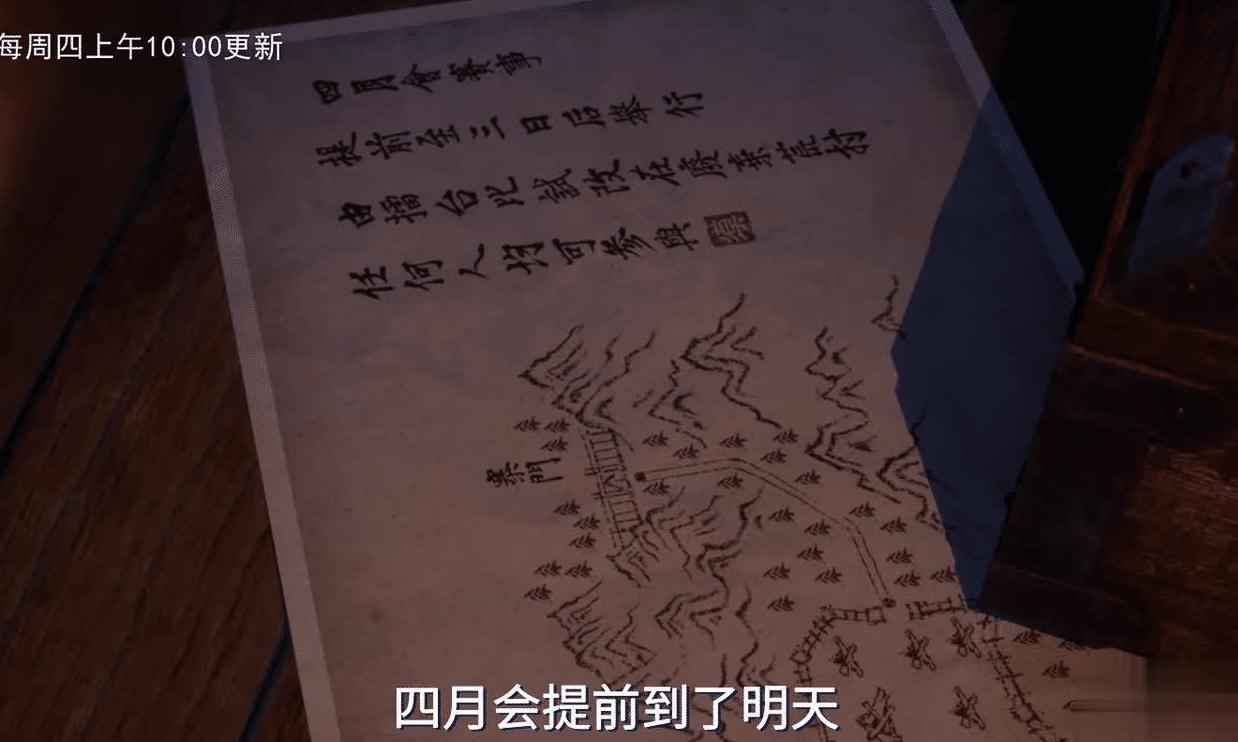 每周四上午10:00更新
四月會賽事
提前至三日后舉行
由擂台比試改在廢棄荒村
任何人均可參與
寨門
四月会提前到了明天